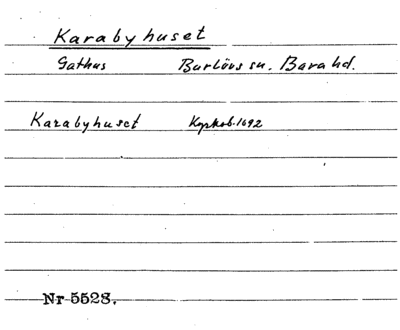 Karabyhuset
Gathus Burlövs sn. Bara hd.
Karabyhuset Kopkob. 1692
Nr 5528.